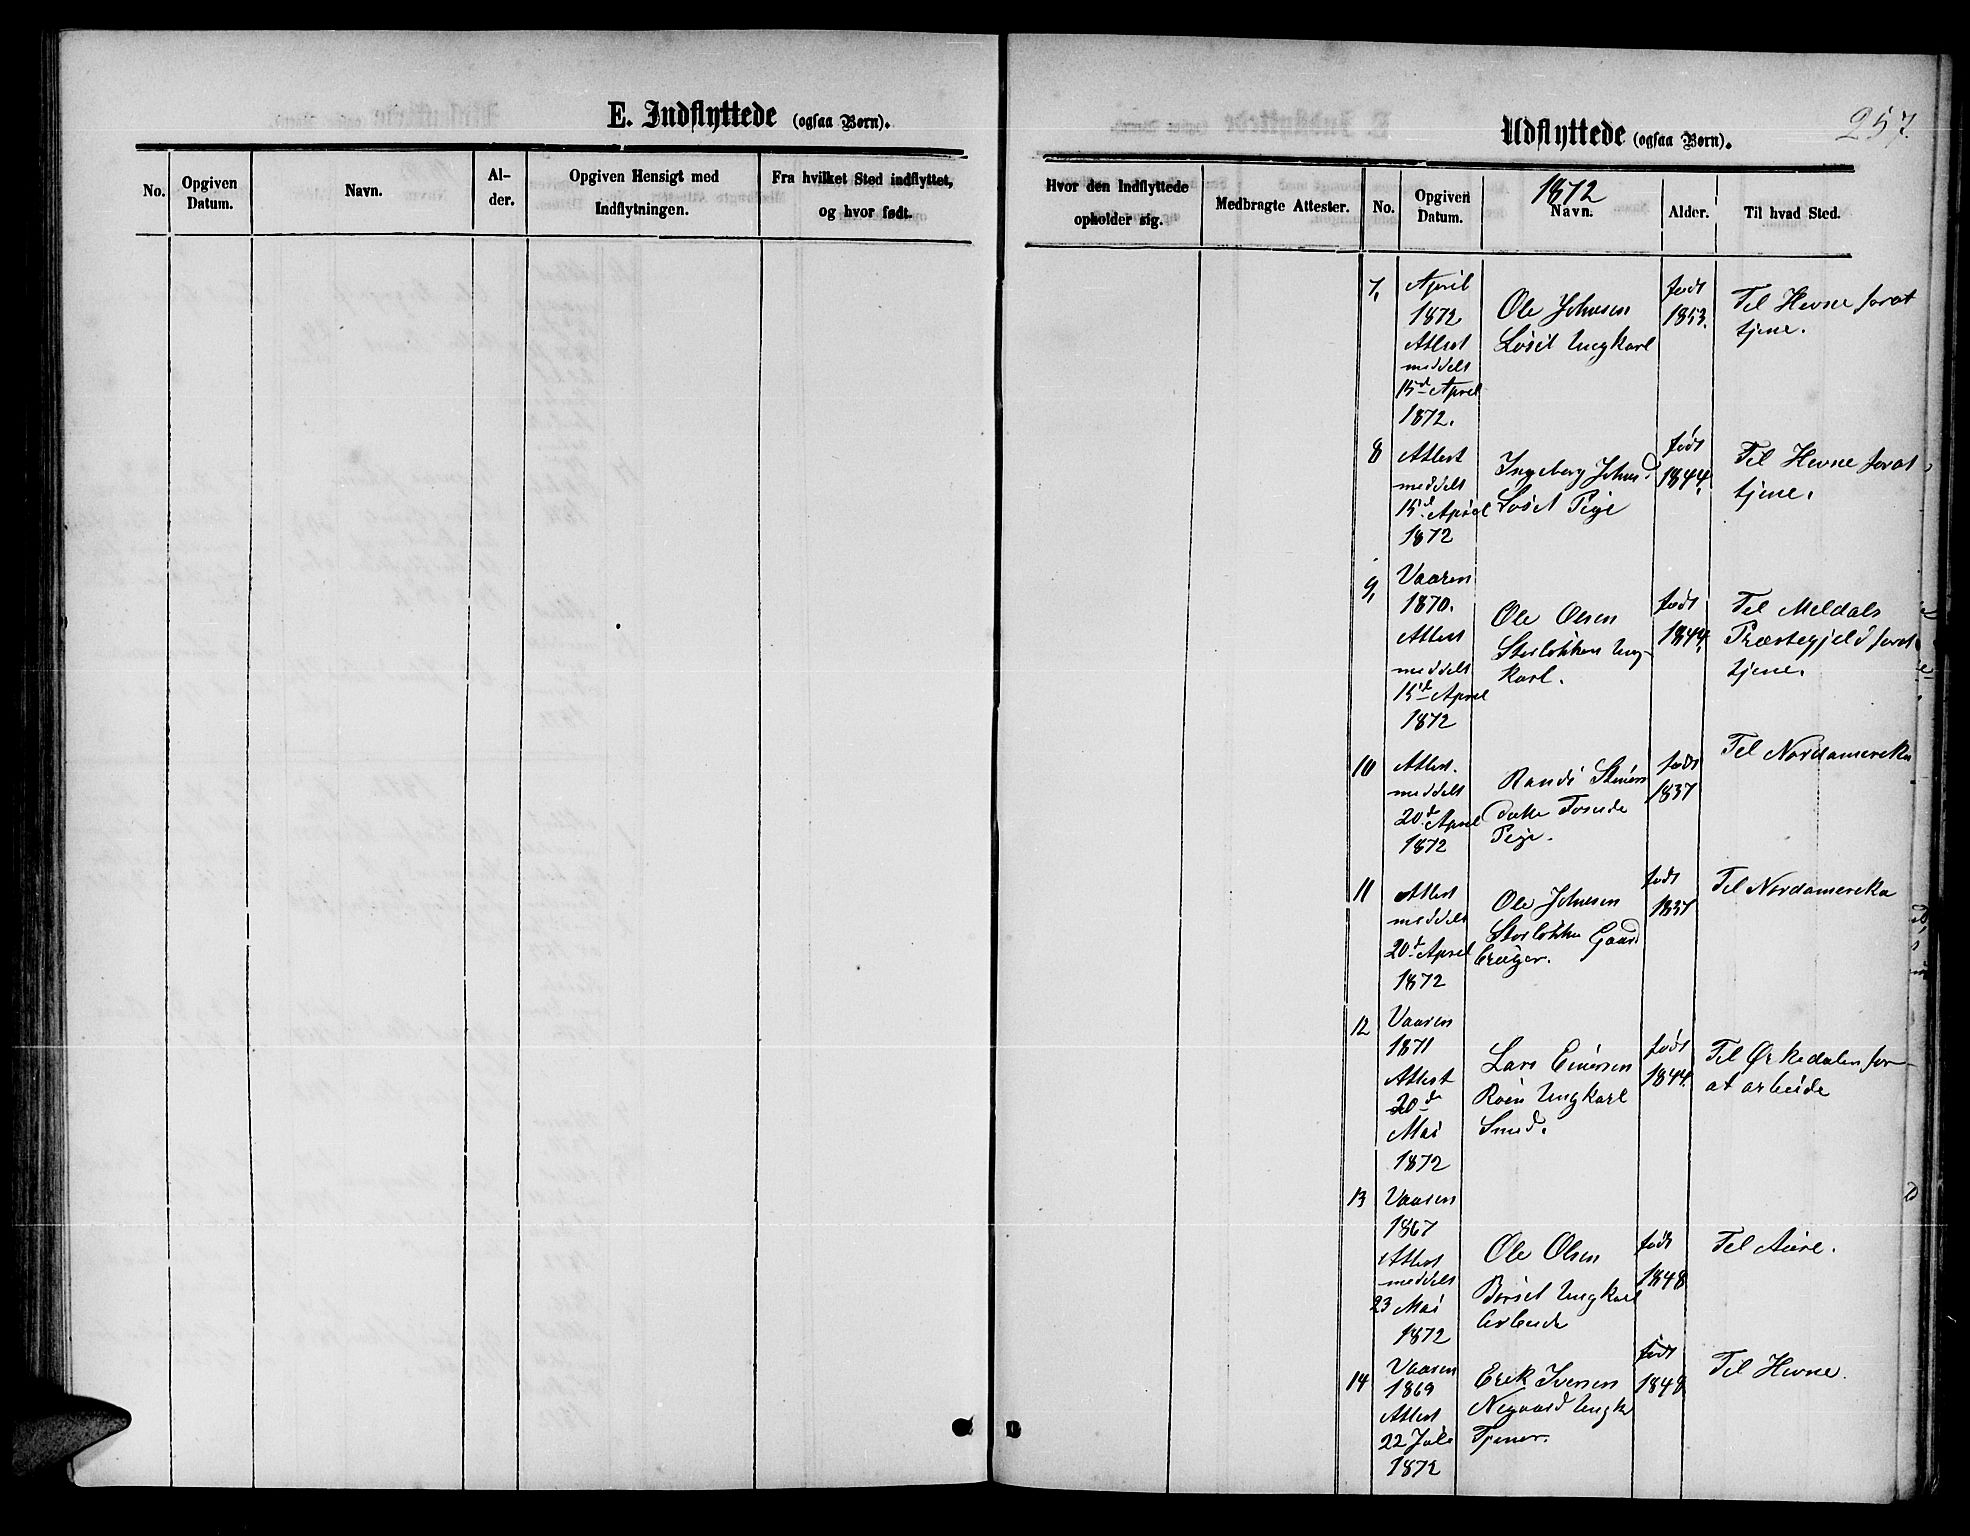 E. Indflyttede (ogsaa Børn).
No.
Opgiven
Datum.
Navn.
Al-
der.
Opgiven Hensigt med
Indflytningen.
Fra hvilket Sted indflyttet,
og hvor født.
257.
Udflyttede (ogsaa Børn).
Hvor den Indflyttede
opholder sig.
Medbragte Attester.
No.
Opgiven
Datum.
1872
Navn.
Alder.
Til hvad Sted.
7,
April
1872
Attest
meddelt
15d April
1872.
Ole Johnsen
Løset Ungkarl
født
1853.
Til Hevne forat
tjene.
8
Attest
meddelt
15d April
1872
Ingeborg Johnsd
Løset Pige
født
1844.
Til Hevne forat
tjene.
9,
Vaaren
1870.
Attest
meddelt
15de April
1872
Ole Olsen
Storløkken Ung-
karl.
født
1844.
Til Meldals
Præstegjeld forat
tjene.
10
Attest.
meddelt
20de April
1872
Randi
Pige.
født
1837
Til Nordamerika
11
Attest
meddelt
20de April
1872
Ole Johnsen
Storløkken Gaard
bruger.
født
1837
Til Nordamerika
12
Vaaren
1871
Attest
20de
Mai
1872
Lars Einersen
Roen Ungkarl
Smed.
født
1844.
Til Ørkedalen for-
at arbeide
13
Vaaren
1867
Attest
meddelt
23 Mai
1872
Ole Olsen
Børset Ungkarl
arbeide
født
1848
Til Aure.
14
Vaaren
1869
Attest
22 Juli
1872
Erik Iversen
Negaard Ungk
Tjener.
født
1848
Til Hevne.